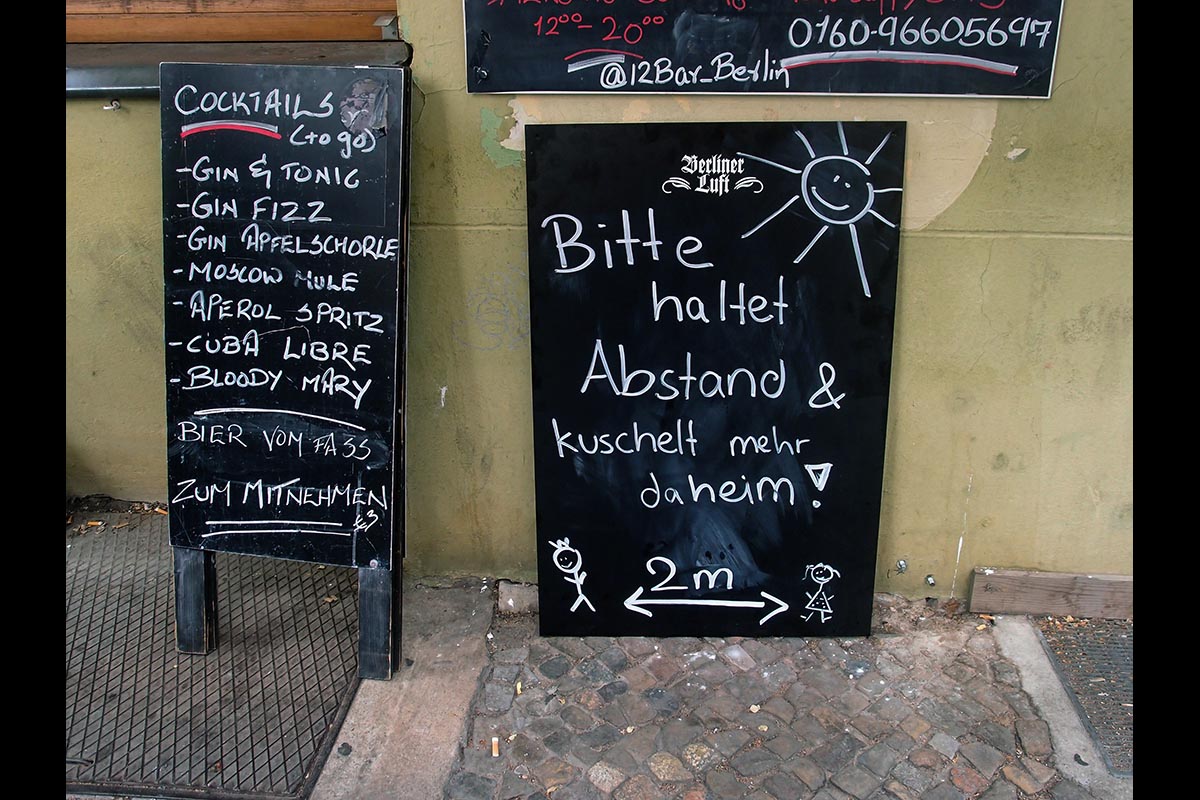 12⁰⁰-20⁰⁰
0160-96605697
@12Bar_Berlin
COCKTAILS
(to go)
-GIN & TONIC
-GIN FIZZ
-GIN APFELSCHORLE
-MOSCOW MULE
-APEROL SPRITZ
-CUBA LIBRE
-BLOODY MARY
BIER VOM FASS
ZUM MITNEHMEN
Berliner
Luft
Bitte
haltet
Abstand &
kuschelt mehr
daheim!
2m